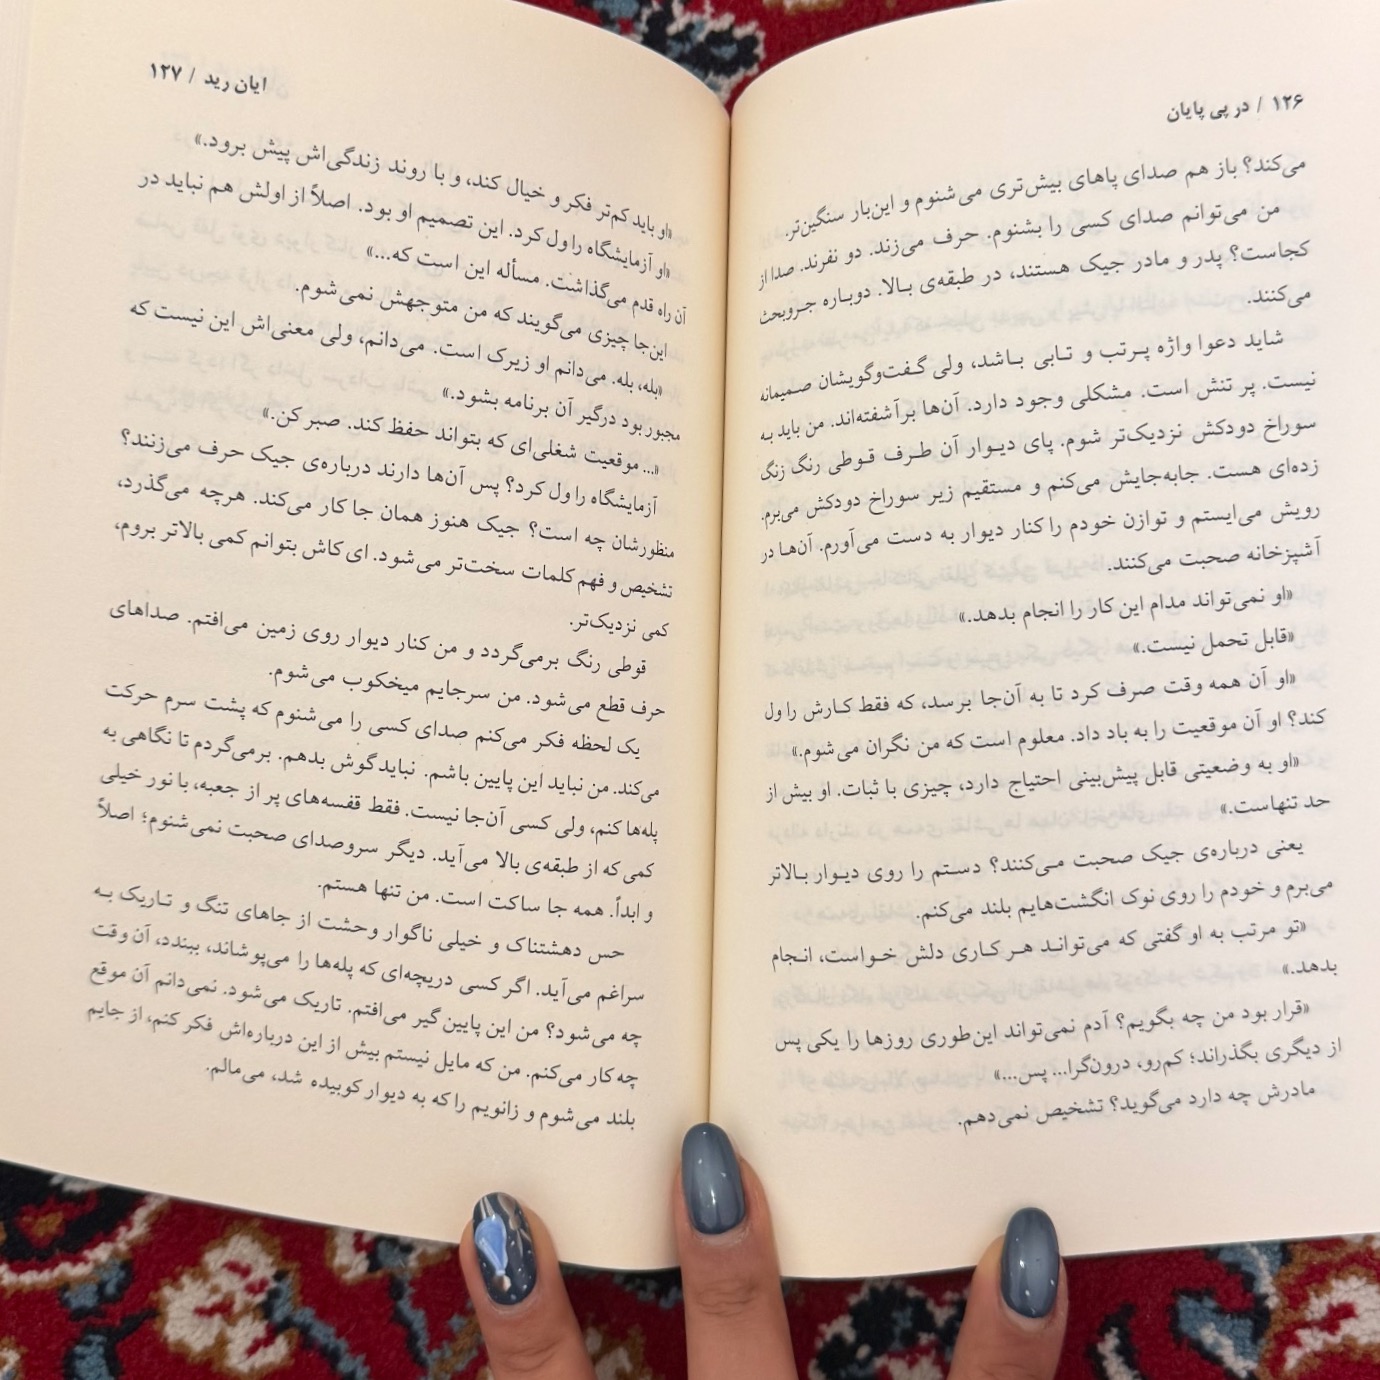 ۱۲۶ / در پی پایان
می‌کند؟ باز هم صدای پاهای بیش‌تری می‌شنوم و این‌بار سنگین‌تر.
من می‌توانم صدای کسی را بشنوم. حرف می‌زند. دو نفرند. صدا از
کجاست؟ پدر و مادر جیک هستند، در طبقه‌ی بالا. دوباره جروبحث
می‌کنند.
شاید دعوا واژه پرتب و تابی باشد، ولی گفت‌وگویشان صمیمانه
نیست. پر تنش است. مشکلی وجود دارد. آن‌ها برآشفته‌اند. من باید به
سوراخ دودکش نزدیک‌تر شوم. پای دیوار آن طرف قوطی رنگ زنگ
زده‌ای هست. جابه‌جایش می‌کنم و مستقیم زیر سوراخ دودکش می‌برم.
رویش می‌ایستم و توازن خودم را کنار دیوار به دست می‌آورم. آن‌ها در
آشپزخانه صحبت می‌کنند.
«او نمی‌تواند مدام این کار را انجام بدهد.»
«قابل تحمل نیست.»
«او آن همه وقت صرف کرد تا به آن‌جا برسد، که فقط کارش را ول
کند؟ او آن موقعیت را به باد داد. معلوم است که من نگران می‌شوم.»
«او به وضعیتی قابل پیش‌بینی احتیاج دارد، چیزی با ثبات. او بیش از
حد تنهاست.»
یعنی درباره‌ی جیک صحبت می‌کنند؟ دستم را روی دیوار بالاتر
می‌برم و خودم را روی نوک انگشت‌هایم بلند می‌کنم.
«تو مرتب به او گفتی که می‌تواند هر کاری دلش خواست، انجام
بدهد.»
«قرار بود من چه بگویم؟ آدم نمی‌تواند این‌طوری روزها را یکی پس
از دیگری بگذراند؛ کم‌رو، درون‌گرا... پس...»
مادرش چه دارد می‌گوید؟ تشخیص نمی‌دهم.
ایان رید / ۱۲۷
«او باید کم‌تر فکر و خیال کند، و با روند زندگی‌اش پیش برود.»
«او آزمایشگاه را ول کرد. این تصمیم او بود. اصلاً از اولش هم نباید در
آن راه قدم می‌گذاشت. مسأله این است که...»
این‌جا چیزی می‌گویند که من متوجهش نمی‌شوم.
«بله، بله. می‌دانم او زیرک است. می‌دانم، ولی معنی‌اش این نیست که
مجبور بود درگیر آن برنامه بشود.»
«... موقعیت شغلی‌ای که بتواند حفظ کند. صبر کن.»
آزمایشگاه را ول کرد؟ پس آن‌ها دارند درباره‌ی جیک حرف می‌زنند؟
منظورشان چه است؟ جیک هنوز همان جا کار می‌کند. هرچه می‌گذرد،
تشخیص و فهم کلمات سخت‌تر می‌شود. ای کاش بتوانم کمی بالاتر بروم،
کمی نزدیک‌تر.
قوطی رنگ برمی‌گردد و من کنار دیوار روی زمین می‌افتم. صداهای
حرف قطع می‌شود. من سرجایم میخکوب می‌شوم.
یک لحظه فکر می‌کنم صدای کسی را می‌شنوم که پشت سرم حرکت
می‌کند. من نباید این پایین باشم. نباید گوش بدهم. برمی‌گردم تا نگاهی به
پله‌ها کنم، ولی کسی آن‌جا نیست. فقط قفسه‌های پر از جعبه، با نور خیلی
کمی که از طبقه‌ی بالا می‌آید. دیگر سروصدای صحبت نمی‌شنوم؛ اصلاً
و ابداً. همه جا ساکت است. من تنها هستم.
حس دهشتناک و خیلی ناگوار وحشت از جاهای تنگ و تاریک به
سراغم می‌آید. اگر کسی دریچه‌ای که پله‌ها را می‌پوشاند، ببندد، آن وقت
چه می‌شود؟ من این پایین گیر می‌افتم. تاریک می‌شود. نمی‌دانم آن موقع
چه کار می‌کنم. من که مایل نیستم بیش از این درباره‌اش فکر کنم، از جایم
بلند می‌شوم و زانویم را که به دیوار کوبیده شد، می‌مالم.